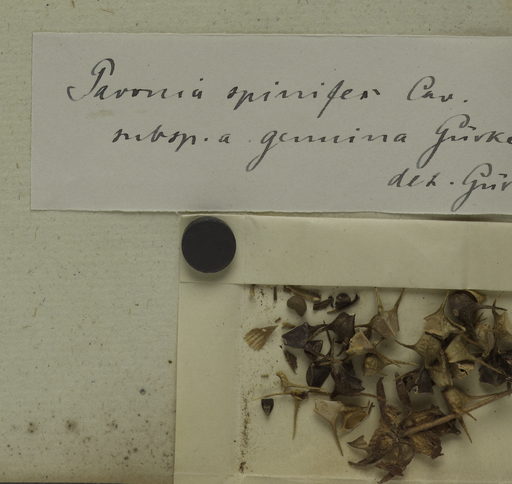 Pavonia spinifex Cav.
subsp. a. genuina Gürke
det. Gür